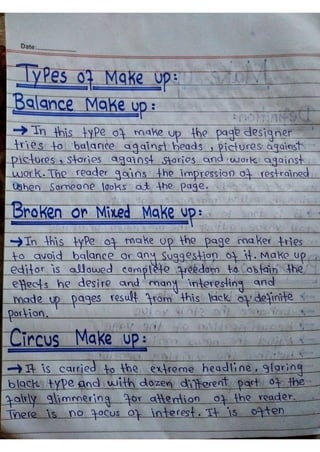 Date:
Types of Make up:
Balance Make up:
→ In this type of make up the page designer
tries to balance against heads, pictures against
pictures, stories against stories and work against
work. The reader gains the impression of restrained
when someone looks at the page.
Broken or Mixed Make up:
→ In this type of make up the page maker tries
to avoid balance or any suggestion of it. Make up
editor is allowed complete freedom to obtain the
effects he desire and many interesting and
made up pages result from this lack of definite
portion.
Circus Make up:
→ It is carried to the extreme headline, glaring
black type and with dozen different part of the
fairly glimmering for attention of the reader.
There is no focus of interest. It is often